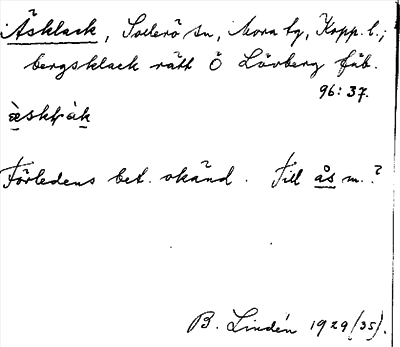 Åsklack, Sollerö sn, Mora tg, Kopp. l.;
bergsklack rätt Ö Lövberg fäb.
96:37.
Förledens bet. okänd. Till ås m.?
B. Lindén 1929(35).